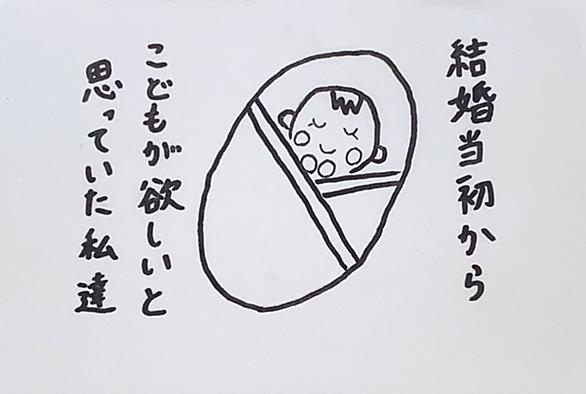 結婚当初から
こどもが欲しいと
思っていた私達